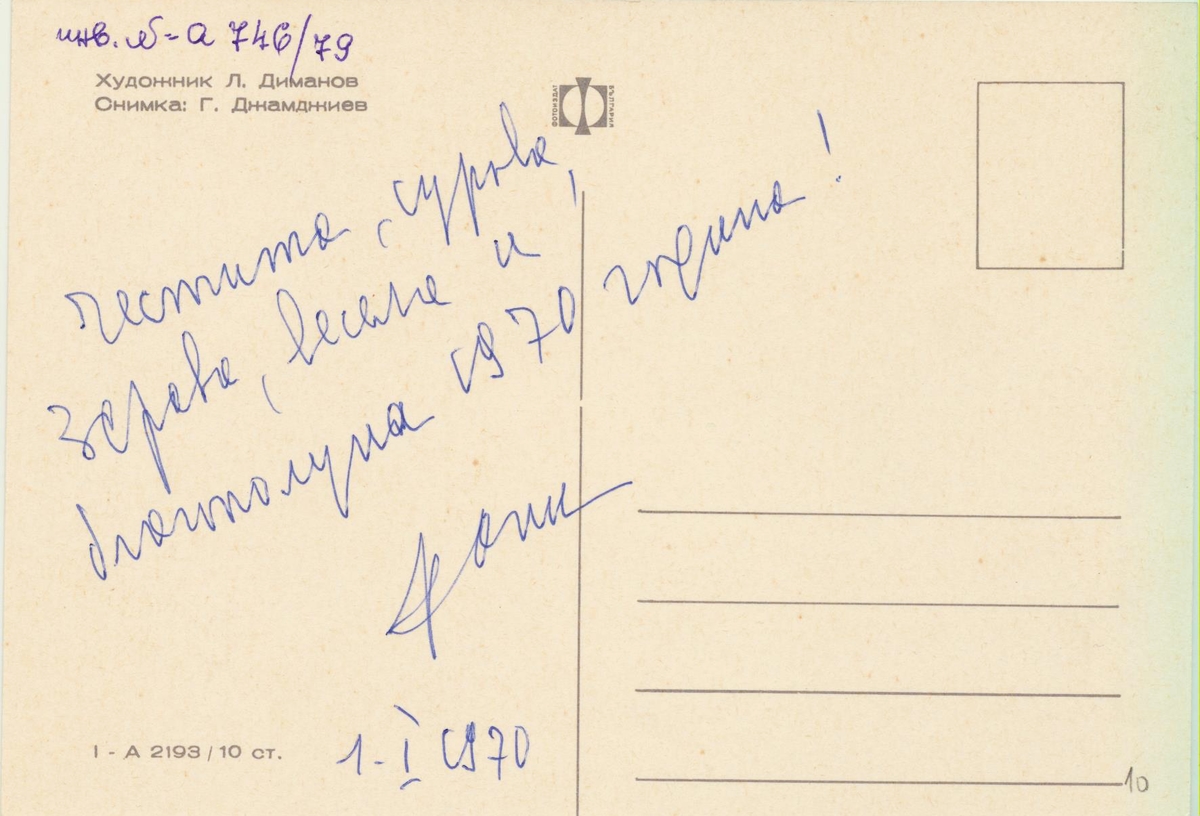 инв. №-а 746/79
Художник Л. Диманов
Снимка: Г. Джамджиев
ФОТОИЗДАТ БЪЛГАРИЯ
Честита, сурова,
здрава, весела и
благополучна 1970 година!
1-I 1970
I - А 2193 / 10 ст.
10